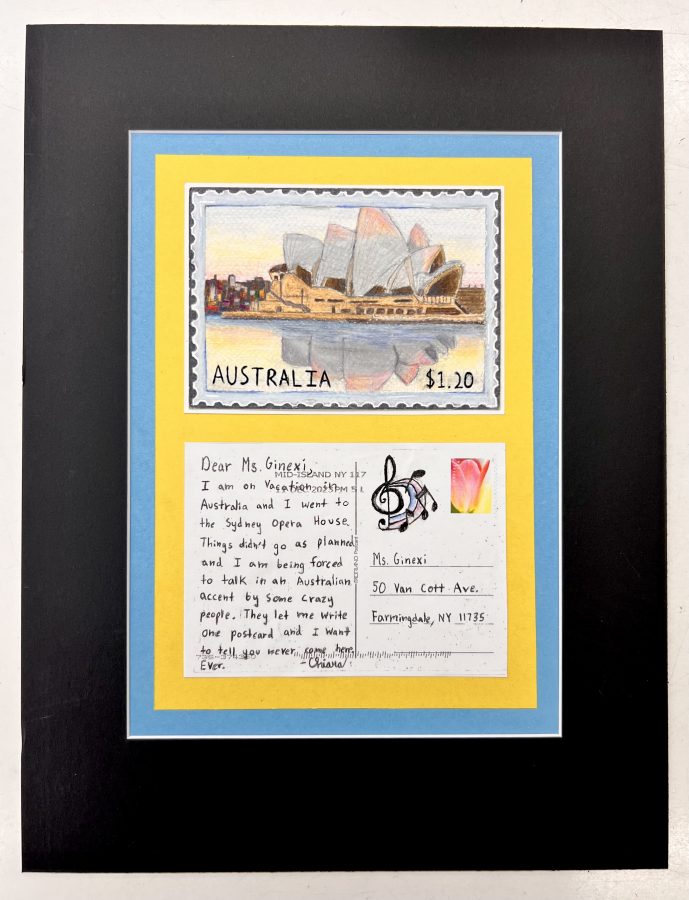 AUSTRALIA $1.20
Dear Ms. Ginexi,
MID-ISLAND NY 117
I am on vacation in
DEC 2023 PM 5 L
Australia and I went to
the Sydney Opera House.
Things didn't go as planned
and I am being forced
to talk in an Australian
accent by some crazy
people. They let me write
one postcard and I want
to tell you never come here
Ever. -Chiara
Ms. Ginexi
50 Van Cott Ave.
Farmingdale, NY 11735